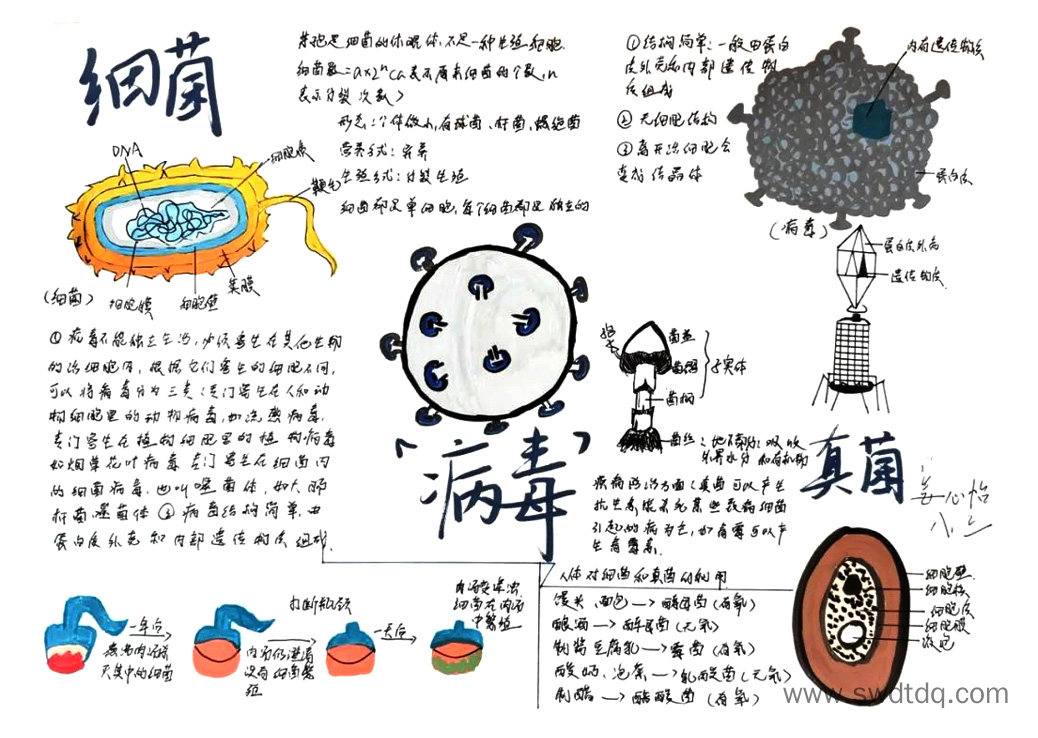 细菌
芽孢是细菌的休眠体,不是一种生殖细胞.
细菌数=a×2ⁿ(a表示原来细菌的个数,n
表示分裂次数)
形态:个体微小,有球菌、杆菌、螺旋菌
营养方式:异养
生殖方式:分裂生殖
细菌都是单细胞,每个细菌都是独立的
DNA
细胞质
鞭毛
荚膜
细胞壁
细胞膜
(细菌)
①结构简单:一般由蛋白
质外壳和内部遗传物
质组成
②无细胞结构
③离开活细胞会
变成结晶体
内有遗传物质
蛋白质
(病毒)
蛋白质外壳
遗传物质
①病毒不能独立生活,必须寄生在其他生物
的活细胞内,根据它们寄生的细胞不同,
可以将病毒分为三类:专门寄生在人和动
物细胞里的动物病毒,如流感病毒.
专门寄生在植物细胞里的植物病毒
如烟草花叶病毒 专门寄生在细菌内
的细菌病毒,也叫噬菌体,如大肠
杆菌噬菌体 ②病毒结构简单.由
蛋白质外壳和内部遗传物质组成.
「病毒」
孢子
菌盖
菌褶
菌柄
子实体
菌丝:地下部分:吸收
外界水分和有机物
真菌
疾病防治方面:真菌可以产生
抗生素,能杀死某些致病细菌
引起的病为主,如青霉可以产
生青霉素.
细胞壁
细胞核
细胞质
细胞膜
液泡
一年后
煮沸肉汤杀
灭其中的细菌
打断瓶颈
肉汤仍澄清
没有细菌繁
殖
一天后
肉汤变浑浊
细菌在肉汤
中繁殖
人体对细菌和真菌的利用
馒头、面包→酵母菌(有氧)
酿酒→酵母菌(无氧)
制酱豆腐乳→霉菌(有氧)
酸奶、泡菜→乳酸菌(无氧)
制醋→醋酸菌(有氧)
www.swdtdq.com